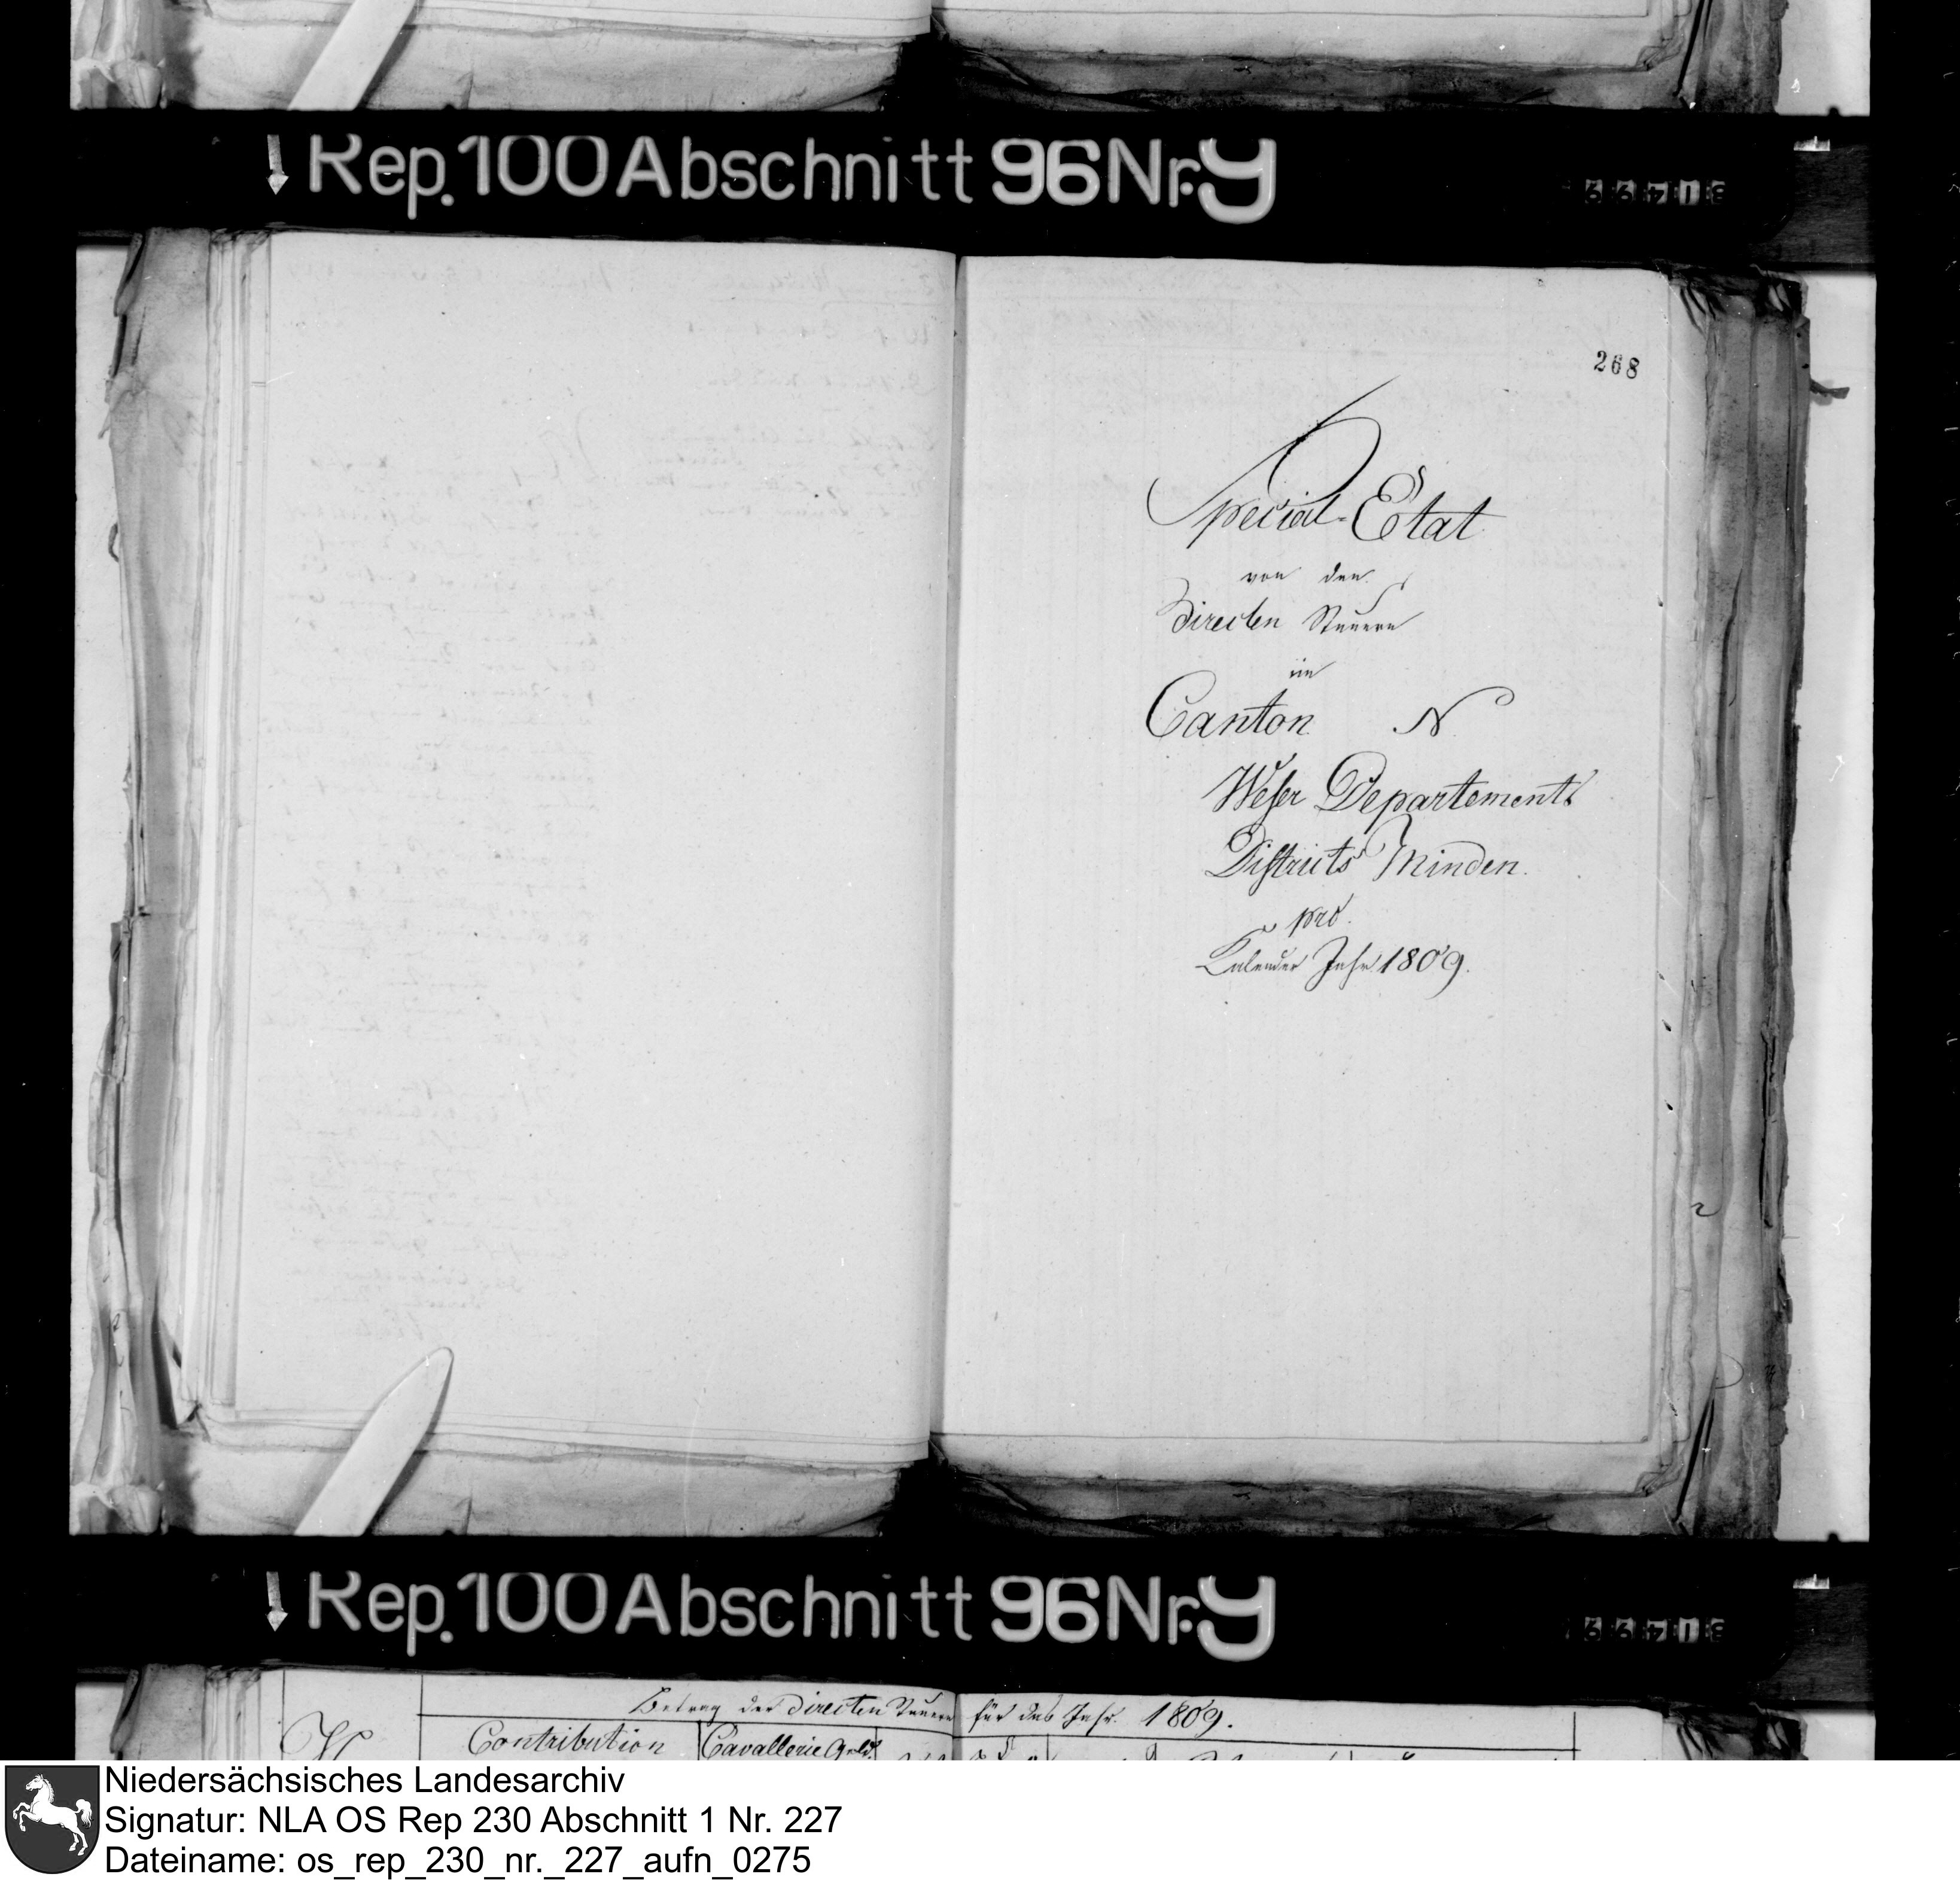 Rep. 100 Abschnitt 96 Nr. 9
31499
268
Special-Etat
von den
directen Steuern
im
Canton N
Weser Departements
Districts Minden.
pro
Kalender Jahr 1809.
Rep. 100 Abschnitt 96 Nr. 9
31499
Betrag der directen Steuern für das Jahr 1809.
Contribution Cavallerie Geld
Niedersächsisches Landesarchiv
Signatur: NLA OS Rep 230 Abschnitt 1 Nr. 227
Dateiname: os_rep_230_nr._227_aufn_0275